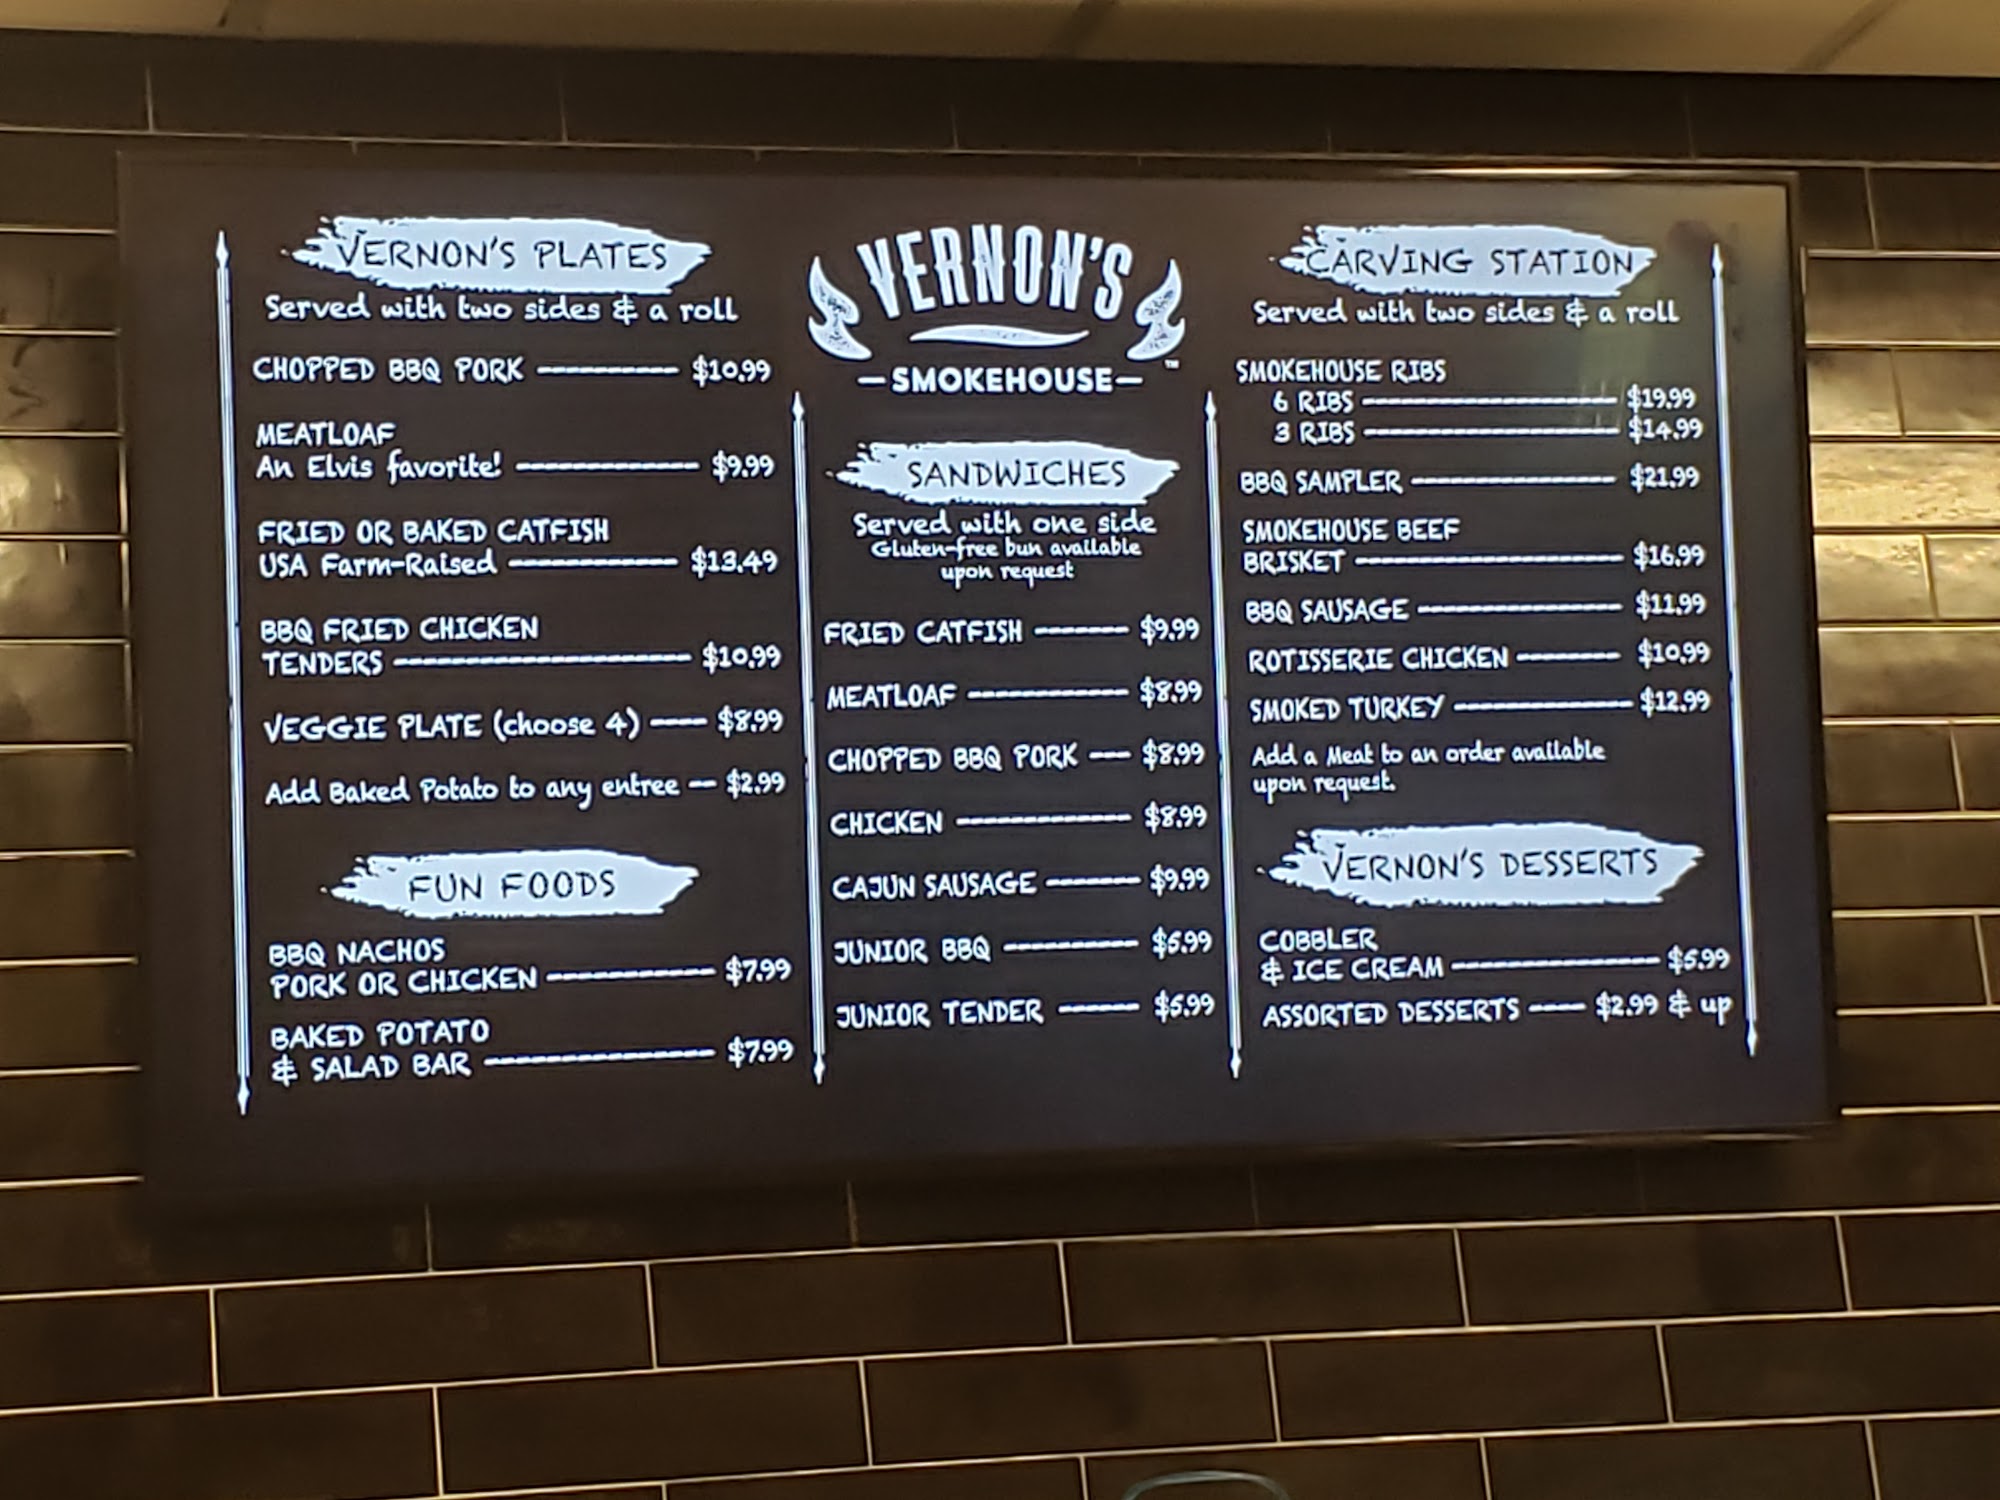 VERNON'S PLATES
Served with two sides & a roll
CHOPPED BBQ PORK $10.99
MEATLOAF
An Elvis favorite! $9.99
FRIED OR BAKED CATFISH
USA Farm-Raised $13.49
BBQ FRIED CHICKEN
TENDERS $10.99
VEGGIE PLATE (choose 4) $8.99
Add Baked Potato to any entree $2.99
FUN FOODS
BBQ NACHOS
PORK OR CHICKEN $7.99
BAKED POTATO
& SALAD BAR $7.99
VERNON'S
SMOKEHOUSE
TM
SANDWICHES
Served with one side
Gluten-free bun available
upon request
FRIED CATFISH $9.99
MEATLOAF $8.99
CHOPPED BBQ PORK $8.99
CHICKEN $8.99
CAJUN SAUSAGE $9.99
JUNIOR BBQ $5.99
JUNIOR TENDER $5.99
CARVING STATION
Served with two sides & a roll
SMOKEHOUSE RIBS
6 RIBS $19.99
3 RIBS $14.99
BBQ SAMPLER $21.99
SMOKEHOUSE BEEF
BRISKET $16.99
BBQ SAUSAGE $11.99
ROTISSERIE CHICKEN $10.99
SMOKED TURKEY $12.99
Add a Meat to an order available
upon request.
VERNON'S DESSERTS
COBBLER
& ICE CREAM $5.99
ASSORTED DESSERTS $2.99 & up